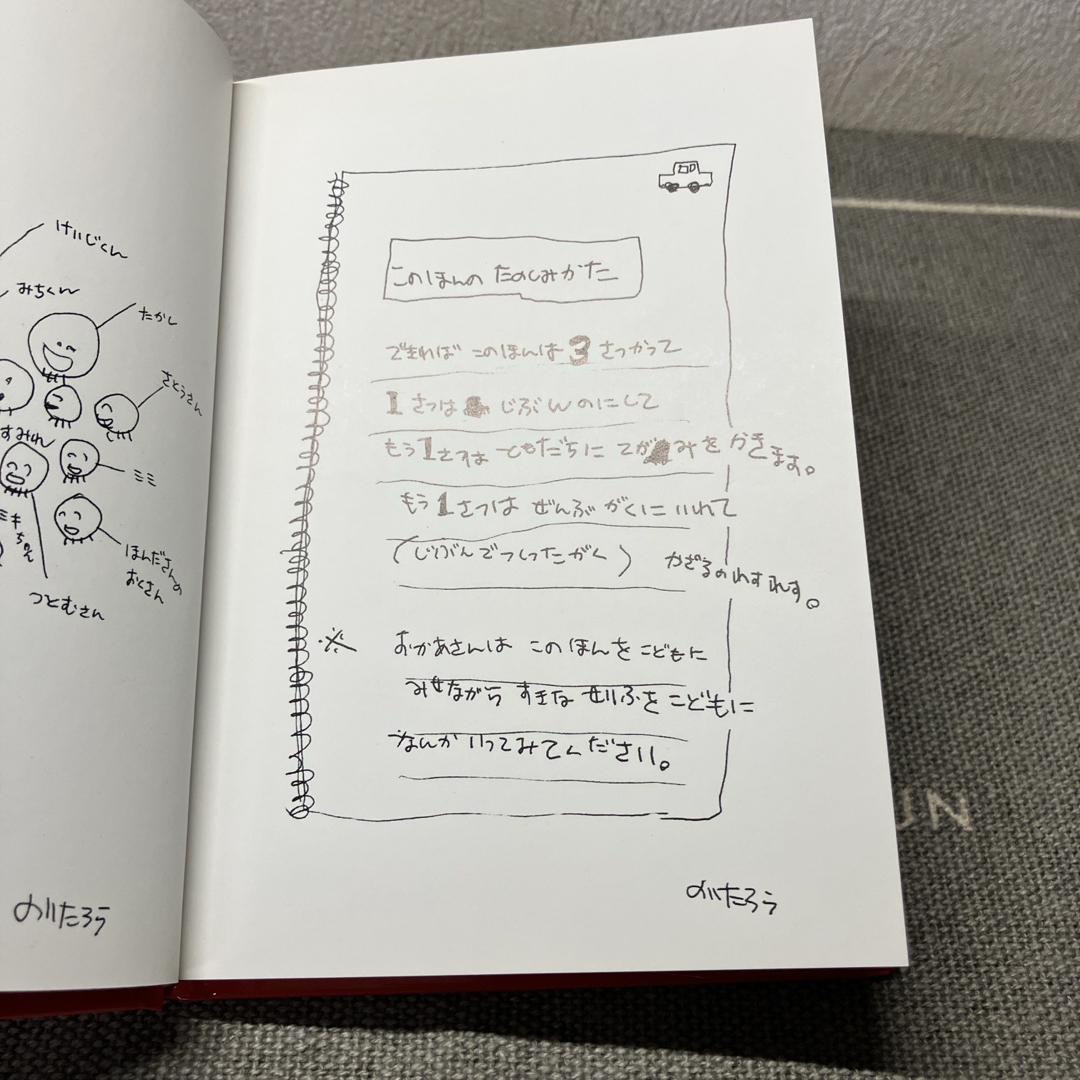 けいじくん
みちくん
たかし
さとうさん
すみれ
ミミ
ミキちゃん
ほんださんの
おくさん
つとむさん
のりたろう
このほんの たのしみかた
できれば このほんは 3 さつかって
1 さつは じぶんのにして
もう1さつは ともだちに てがみを かきます。
もう 1さつは ぜんぶ がくに いれて
(じぶんでつくったがく) かざるのれすれす。
※ おかあさんは このほんを こどもに
みせながら すきな せりふを こどもに
なんか いってみてください。
のりたろう
UN